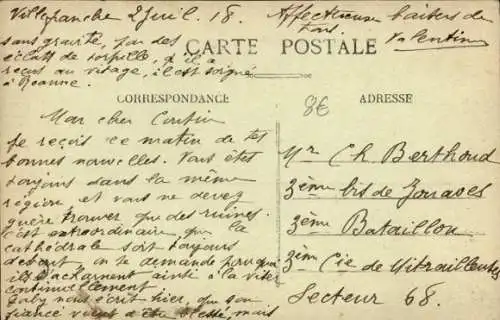 Villefranche 2 Juil. 18.
Affectueux baisers de
tous.
Valentine
sans gravité, par des
éclats de torpille, qu'il a
reçus au visage, il est soigné
à Roanne.
CARTE POSTALE
CORRESPONDANCE
ADRESSE
8€
Mon cher Cousin
Je reçois ce matin de tes
bonnes nouvelles. Vous êtes
toujours dans la même
région et vous ne devez
guère trouver que des ruines.
C'est extraordinaire que la
cathédrale soit toujours
debout, on se demande pourquoi
ils s'acharnent ainsi à la viser
continuellement
Gaby nous écrit hier, que son
fiancé vient d'être blessé, mais
Mr Ch. Berthoud
3ème bis de Zouaves
3ème Bataillon
3ème Cie de Mitrailleuses
Secteur 68.